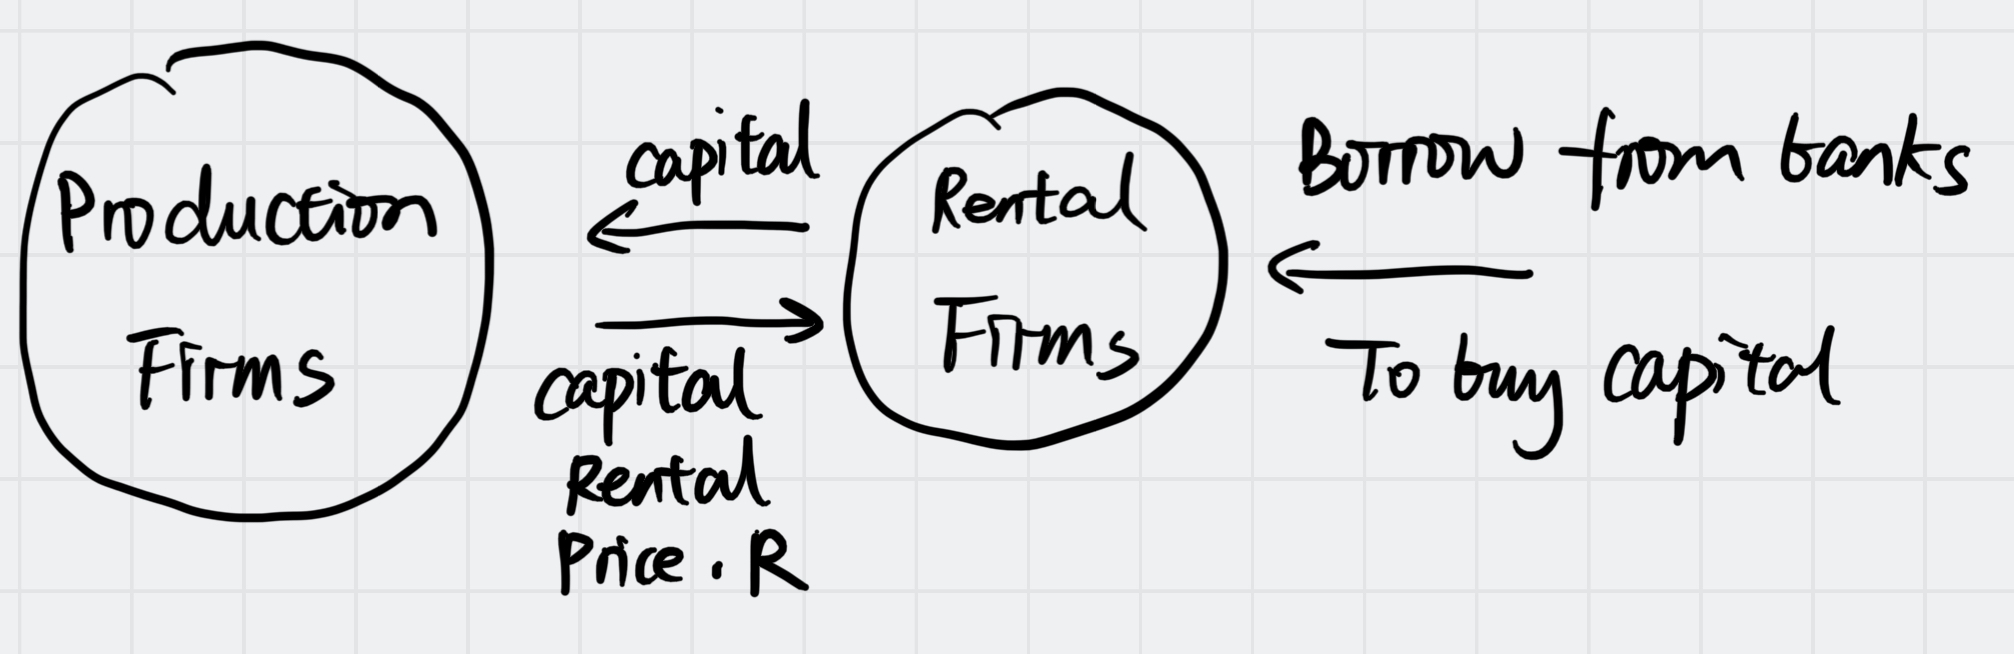 Production
Firms
capital
capital
Rental
Price. R
Rental
Firms
Borrow from banks
To buy capital